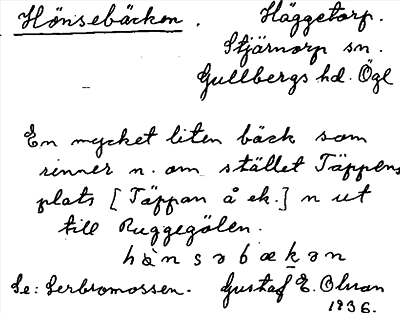 Hönsebäcken. Häggetorp.
Stjärnorp sn.
Gullbergs hd. Ögl
En mycket liten bäck som
rinner n. om stället Täppens
plats [Täppan å ek.] n ut
till Ruggegölen.
hànsəbækən
Se: Serbromossen. Gustaf E. Olsson
1936.